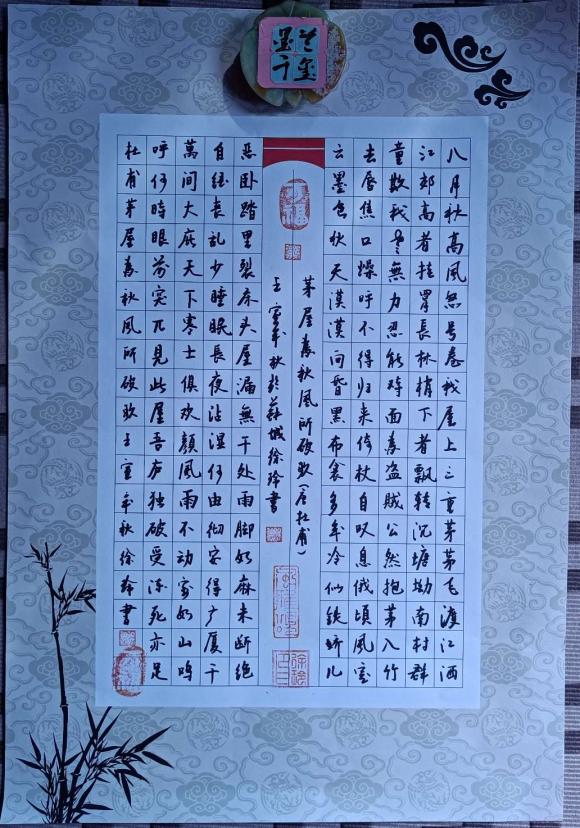 八月秋高風怒号卷我屋上三重茅茅飞渡江洒
江郊高者挂罥長林梢下者飄转沉塘坳南村群
童欺我老無力忍能对面為盗賊公然抱茅入竹
去唇焦口燥呼不得归来倚杖自叹息俄頃風定
云墨色秋天漠漠向昏黑布衾多年冷似铁娇儿
茅屋為秋風所破歌(唐杜甫)
壬寅年秋於蘇城徐玲書
恶卧踏里裂床头屋漏無干处雨脚如麻未断绝
自经丧乱少睡眠長夜沾湿何由彻安得广厦千
萬间大庇天下寒士俱欢顏風雨不动安如山鸣
呼何時眼前突兀見此屋吾庐独破受冻死亦足
杜甫茅屋為秋風所破歌壬寅年秋徐玲書